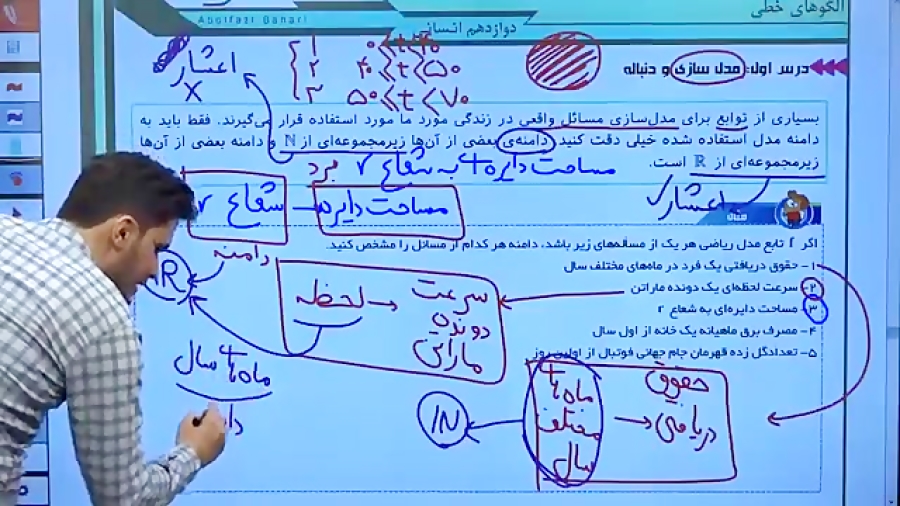 الگوهای خطی
Abolfazl Bahari
دوازدهم انسانی
درس اول: مدل سازی و دنباله
اعشار
X
۱ ۰ ≤ t < ۴۰
۲ ۴۰ ≤ t < ۵۰
۳ ۵۰ ≤ t < ۷۰
بسیاری از توابع برای مدل‌سازی مسائل واقعی در زندگی مورد ما مورد استفاده قرار می‌گیرند. فقط باید به
دامنه مدل استفاده شده خیلی دقت کنید. دامنه‌ی بعضی از آن‌ها زیرمجموعه‌ای از N و دامنه بعضی از آن‌ها
زیرمجموعه‌ای از R است.
مساحت دایره‌ها به شعاع r
برد
اعشار ✓
مثال
شعاع r
مساحت دایره
دامنه
R
اگر f تابع مدل ریاضی هر یک از مسأله‌های زیر باشد، دامنه هر کدام از مسائل را مشخص کنید.
۱- حقوق دریافتی یک فرد در ماه‌های مختلف سال
۲- سرعت لحظه‌ای یک دونده ماراتن
۳- مساحت دایره‌ای به شعاع r
۴- مصرف برق ماهیانه یک خانه از اول سال
۵- تعداد گل زده قهرمان جام جهانی فوتبال از اولین روز
لحظه → سرعت
دونده
ماراتن
ماه‌ها سال
حقوق
دریافتی
ماه‌ها
مختلف
سال
N